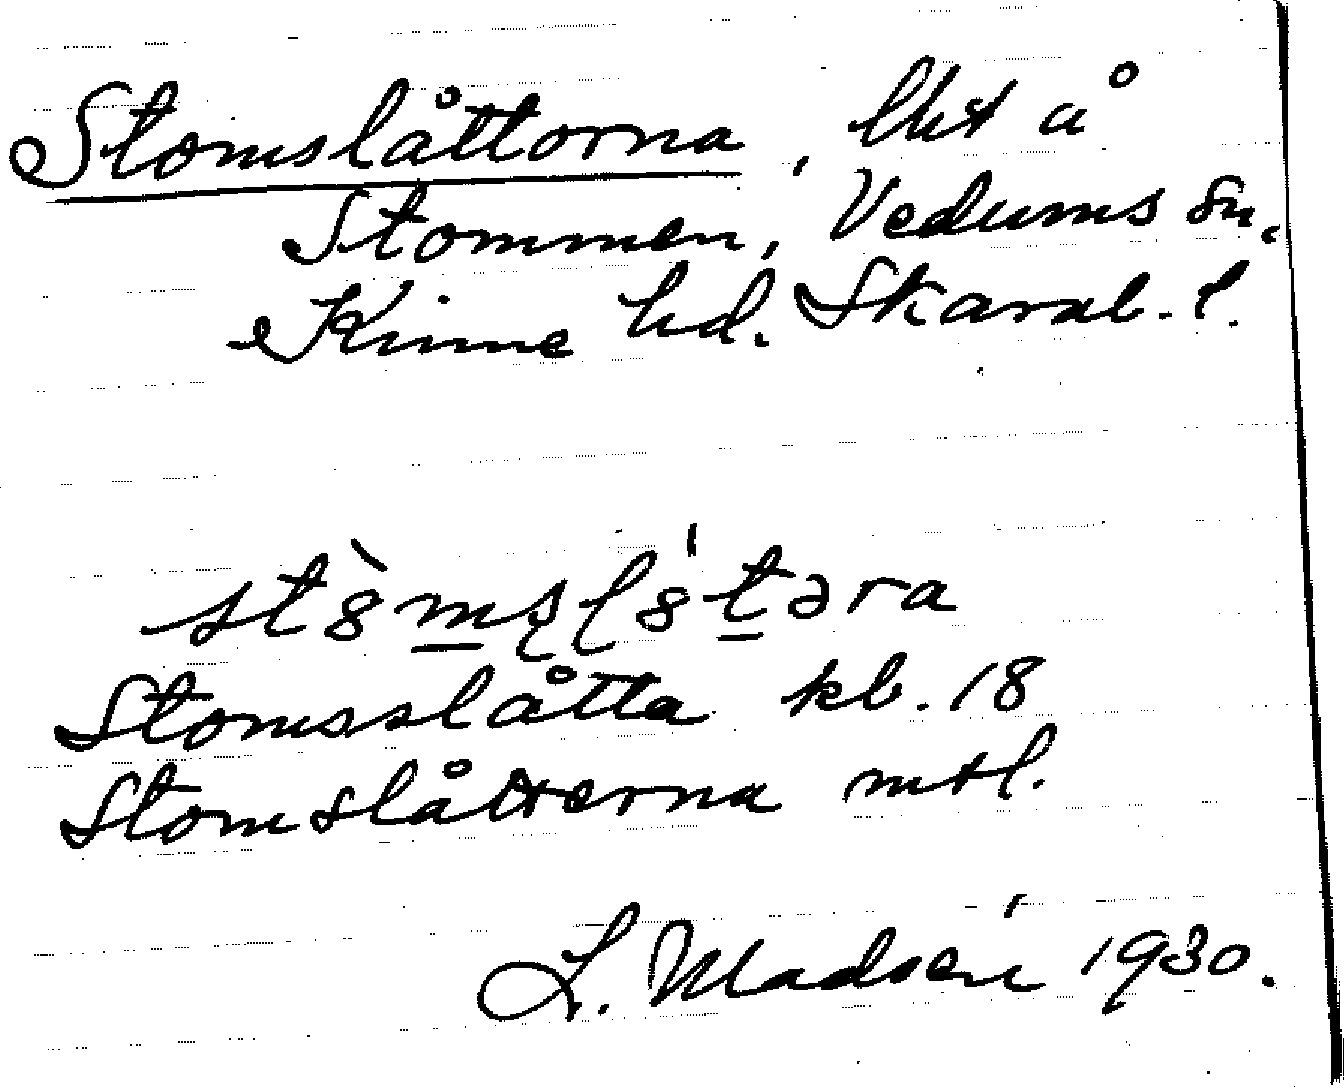 Stomslåttorna, lht å
Stommen, Vedums sn.
Kinne hd. Skarab. l.
st8̀m̲sl8́t̲əra
Stomsslåtta kb. 18
Stomslåtterna mtl.
L. Madsén 1930.